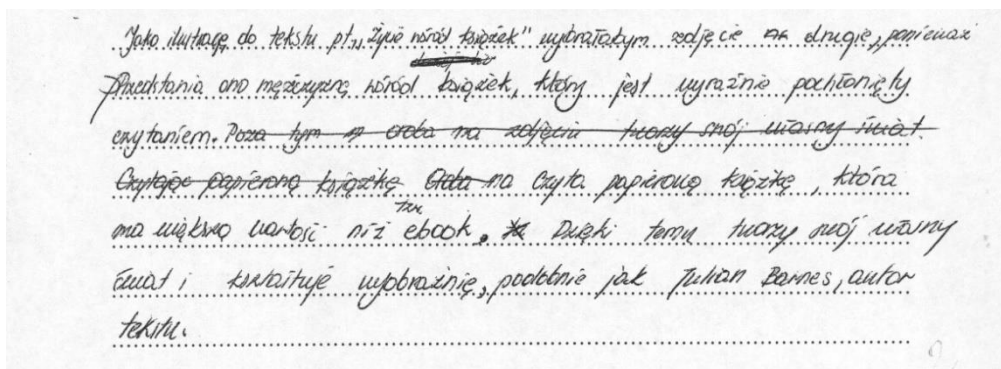 Jako ilustrację do tekstu pt. „Życie wśród książek” wybrałabym zdjęcie drugie, ponieważ
Przedstawia ono mężczyznę wśród książek, który jest wyraźnie pochłonięty
czytaniem. Poza tym osoba na zdjęciu tworzy swój własny świat.
Czytając papierową książkę Osoba na czyta papierową książkę, która
ma większą wartość niż tzw ebook. Dzięki temu tworzy swój własny
świat i kształtuje wyobraźnię, podobnie jak Julian Barnes, autor
tekstu.